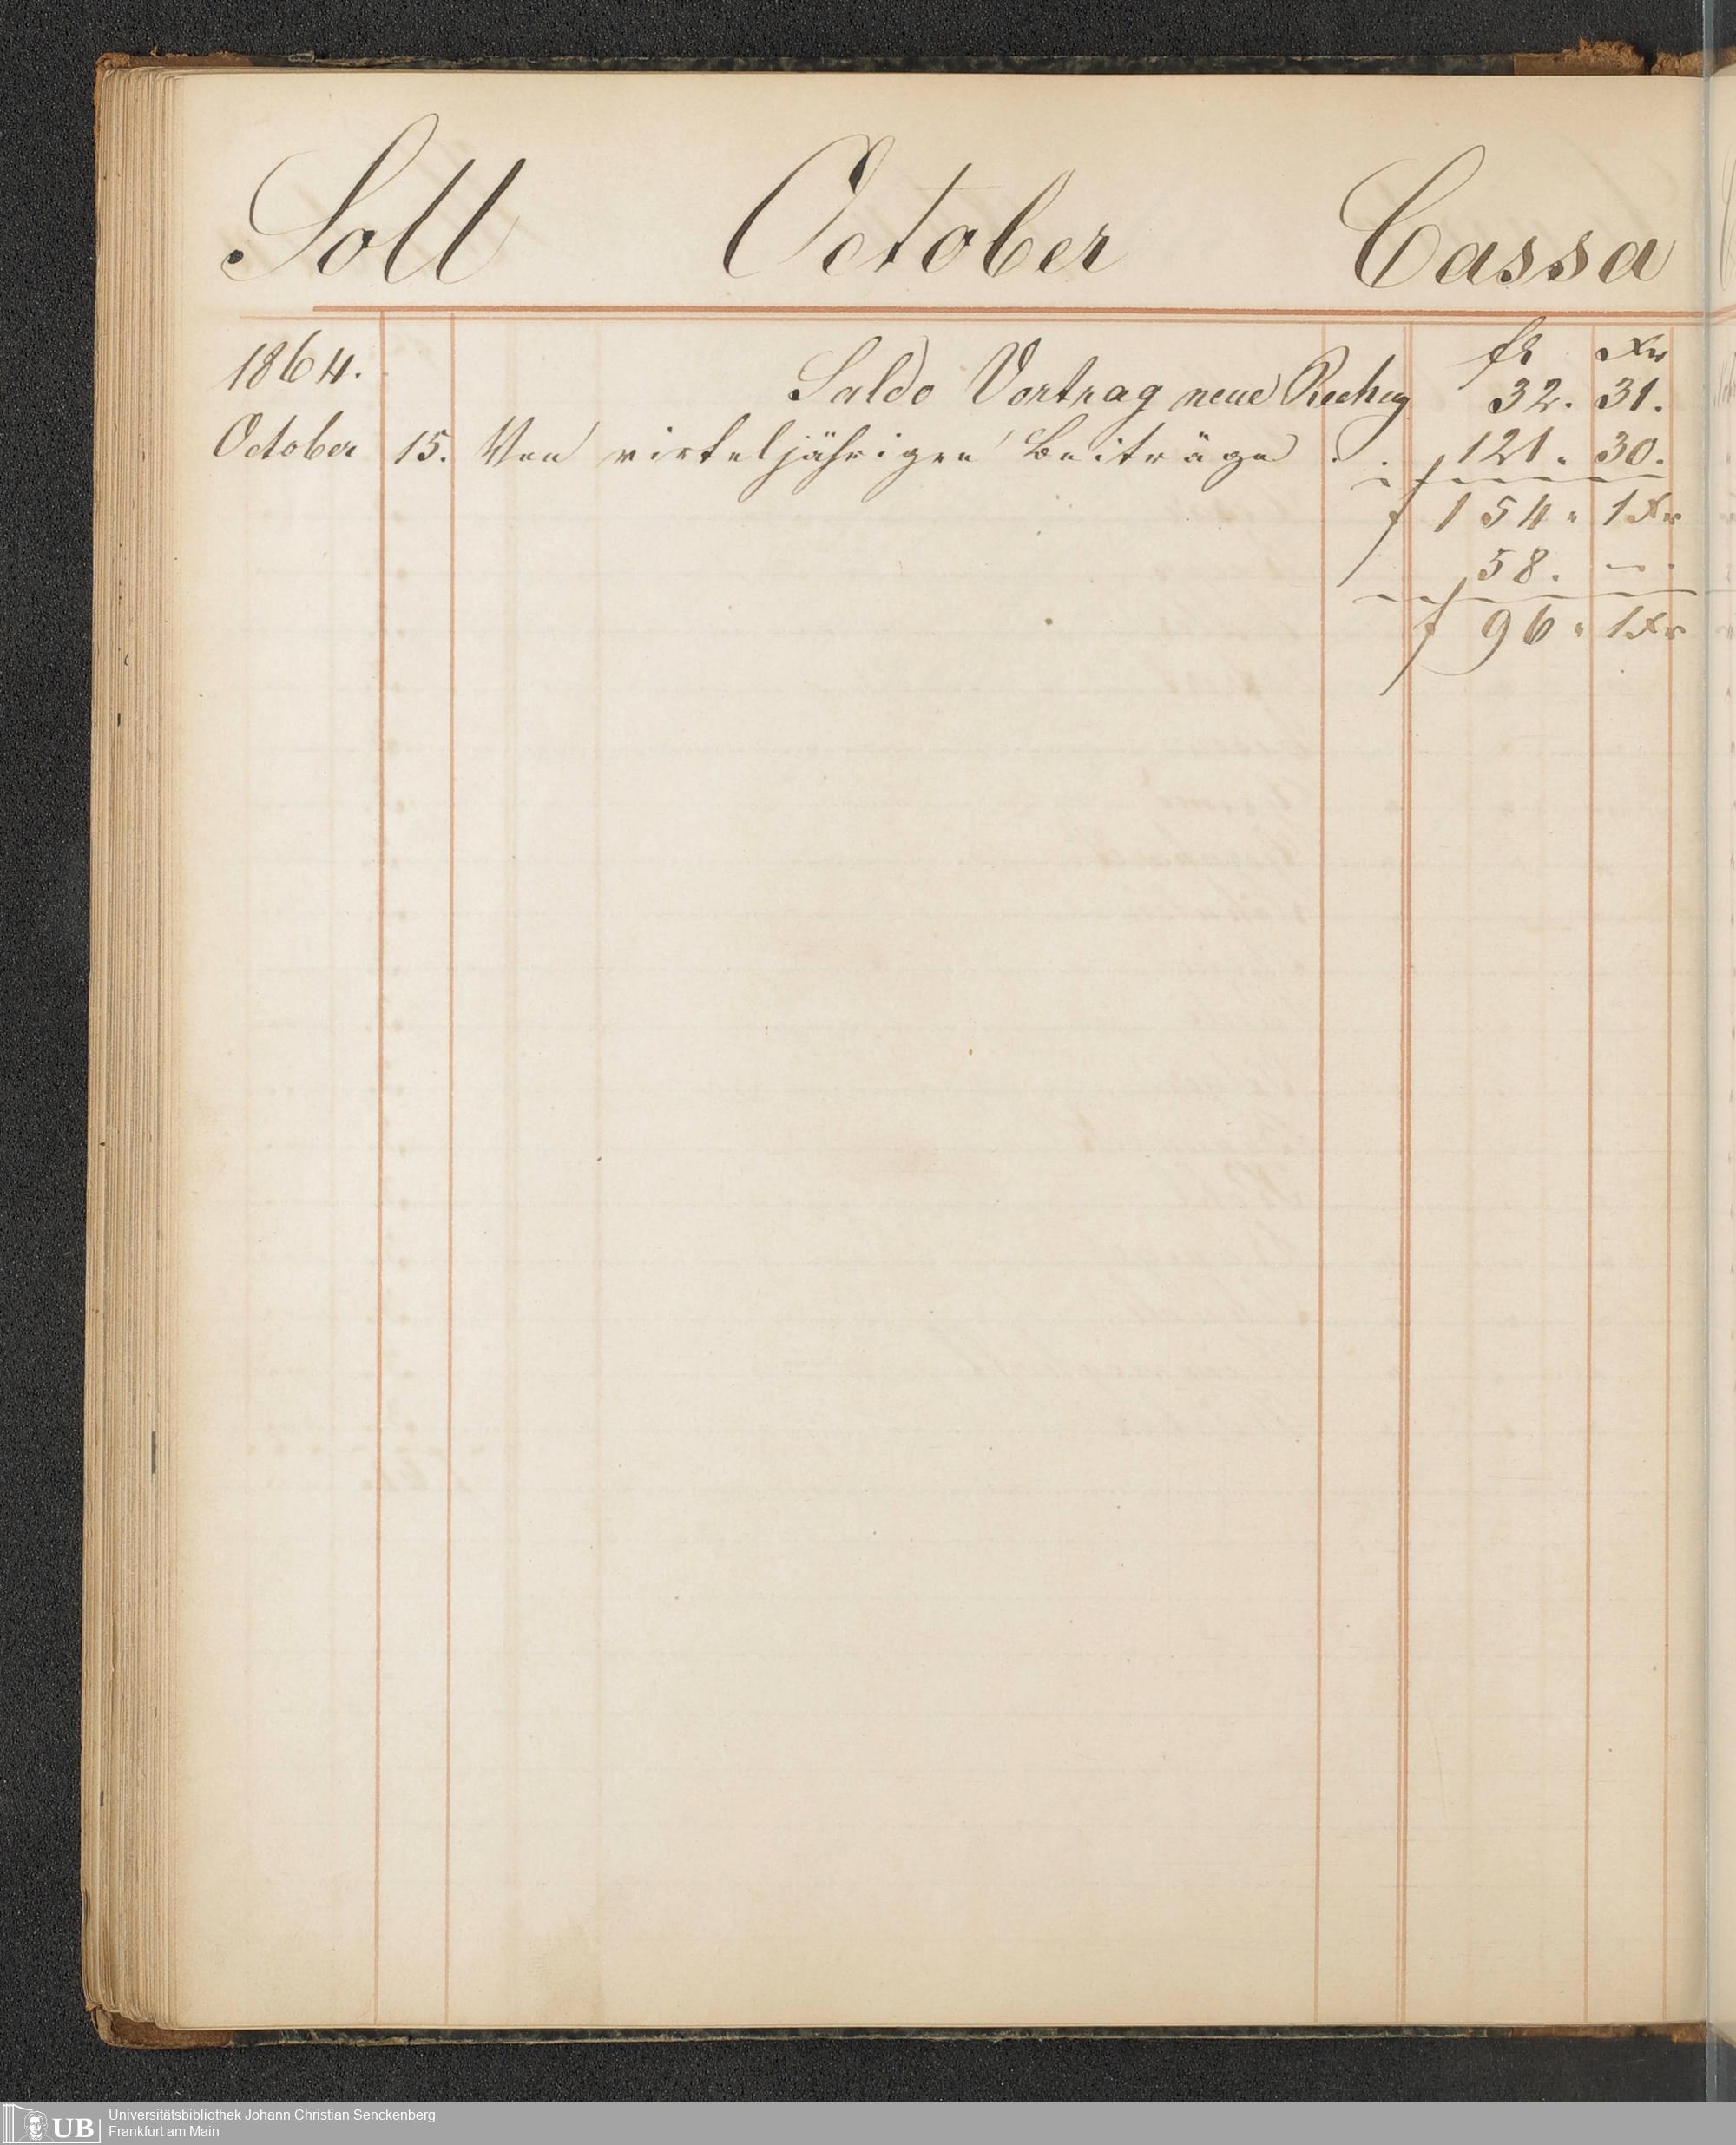 Soll October Cassa
1864. fl Xr
Saldo Vortrag neue Rechng 32. 31.
October 15. Von virteljährigen Beiträge . . 121. 30.
f 154. 1 Xr
58. —.
f 96. 1 Xr
UB Universitätsbibliothek Johann Christian Senckenberg
Frankfurt am Main